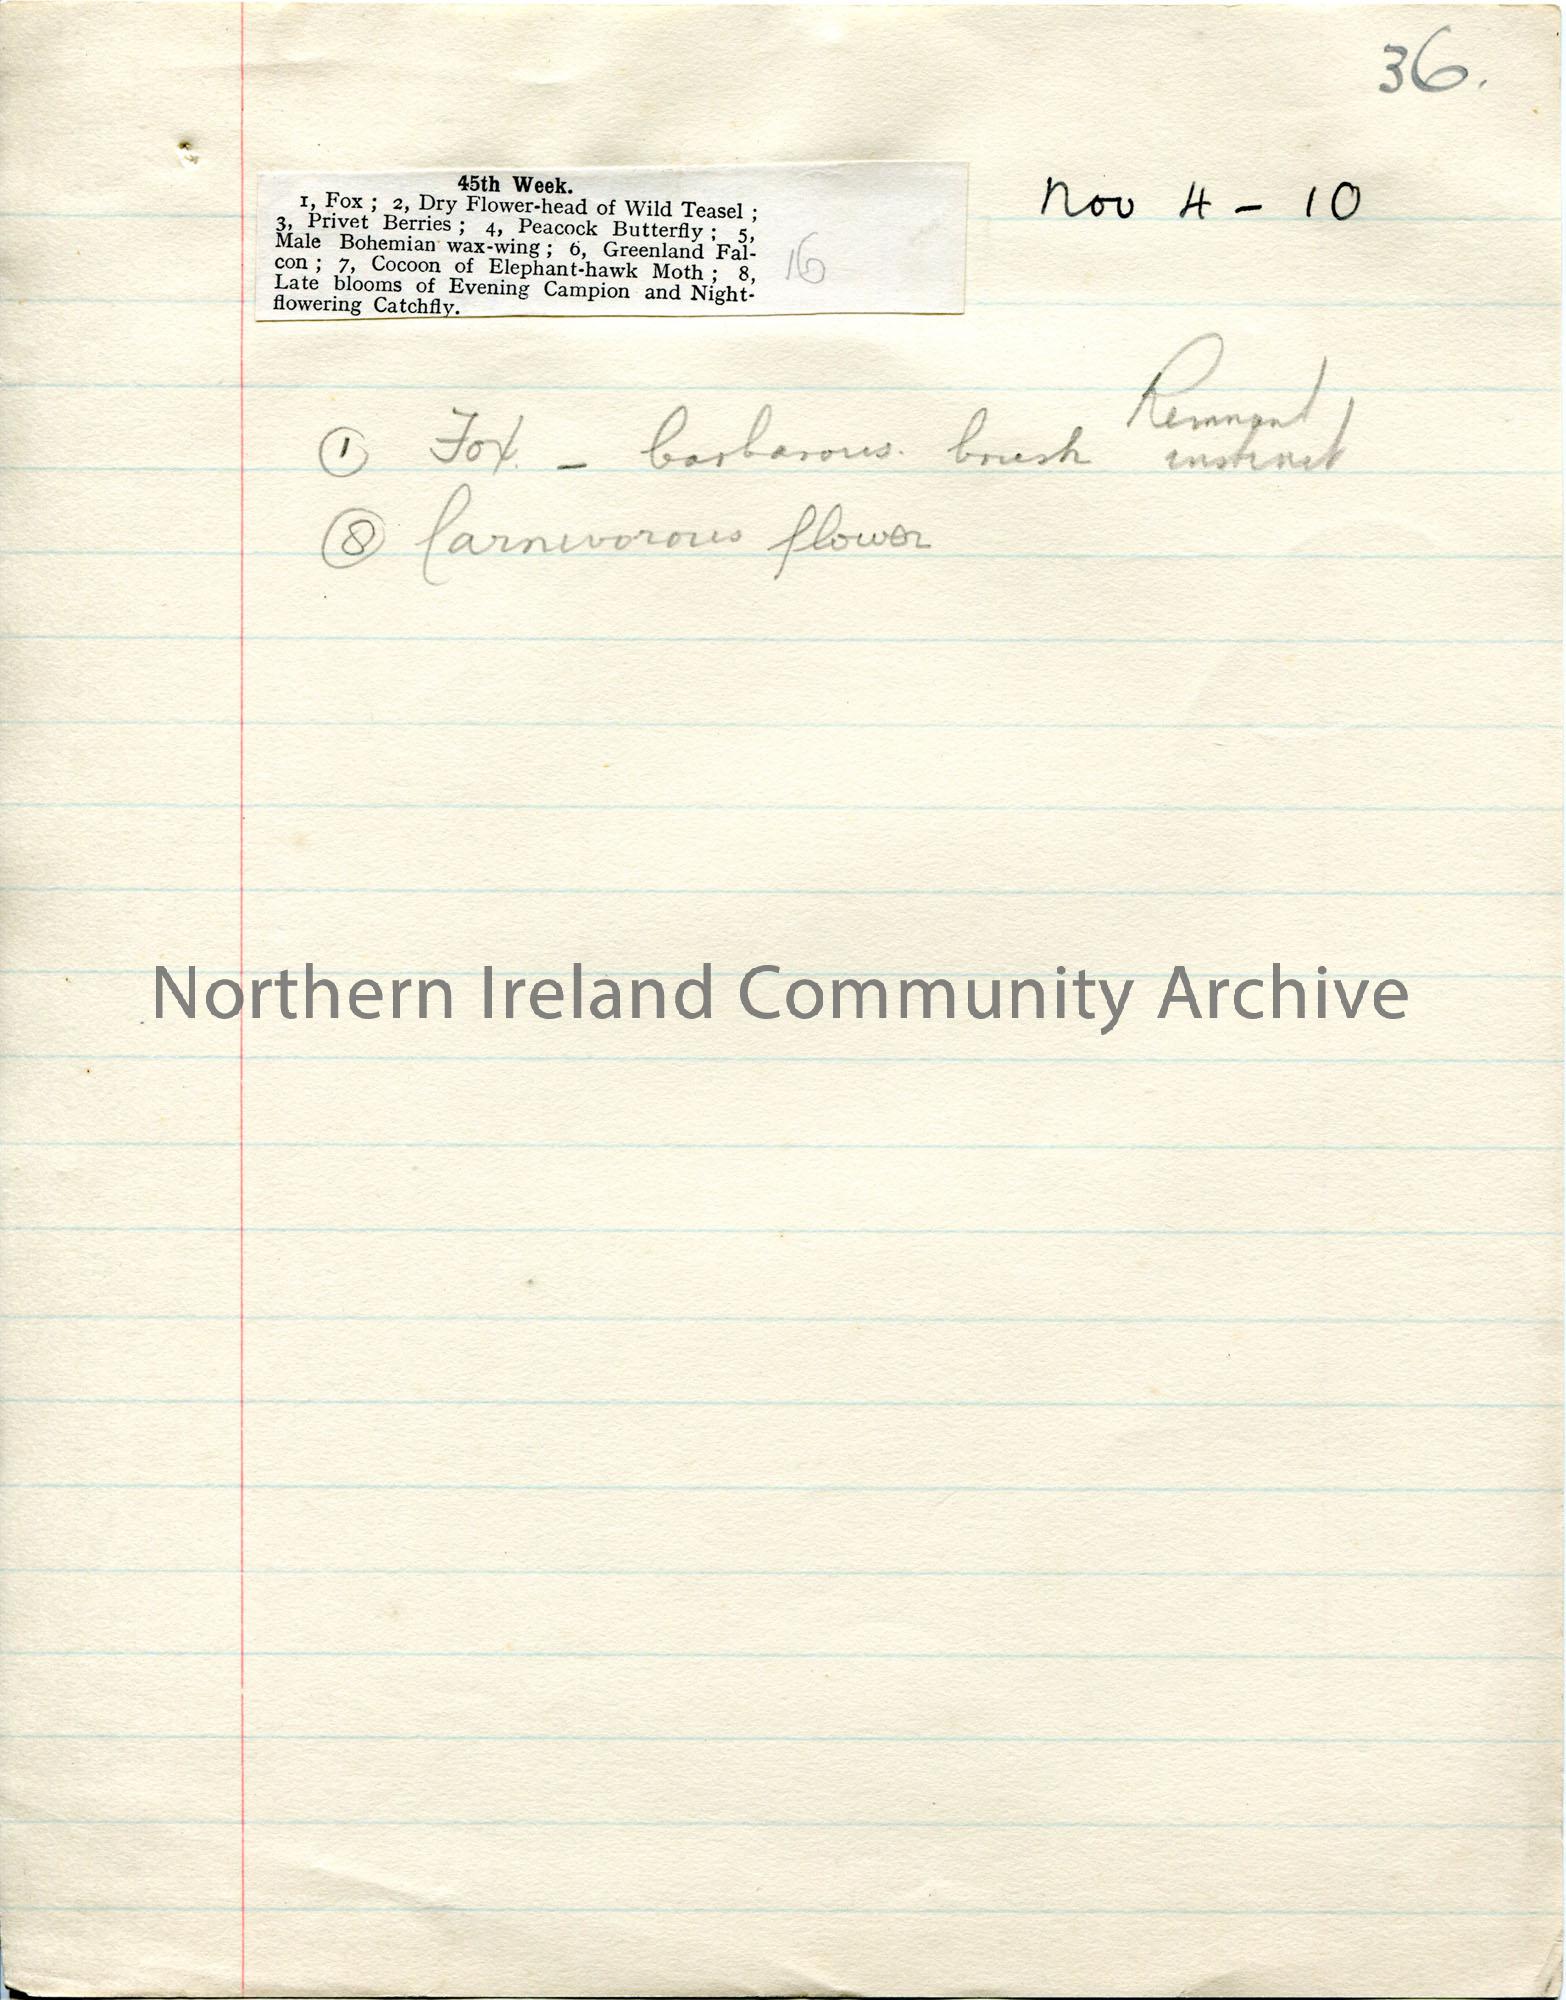 36.
Nov 4 - 10
45th Week.
1, Fox ; 2, Dry Flower-head of Wild Teasel ;
3, Privet Berries ; 4, Peacock Butterfly ; 5,
Male Bohemian wax-wing ; 6, Greenland Fal-
con ; 7, Cocoon of Elephant-hawk Moth ; 8,
Late blooms of Evening Campion and Night-
flowering Catchfly.
16
Remnant
① Fox - barbarous. brush instinct
⑧ Carnivorous flower
Northern Ireland Community Archive